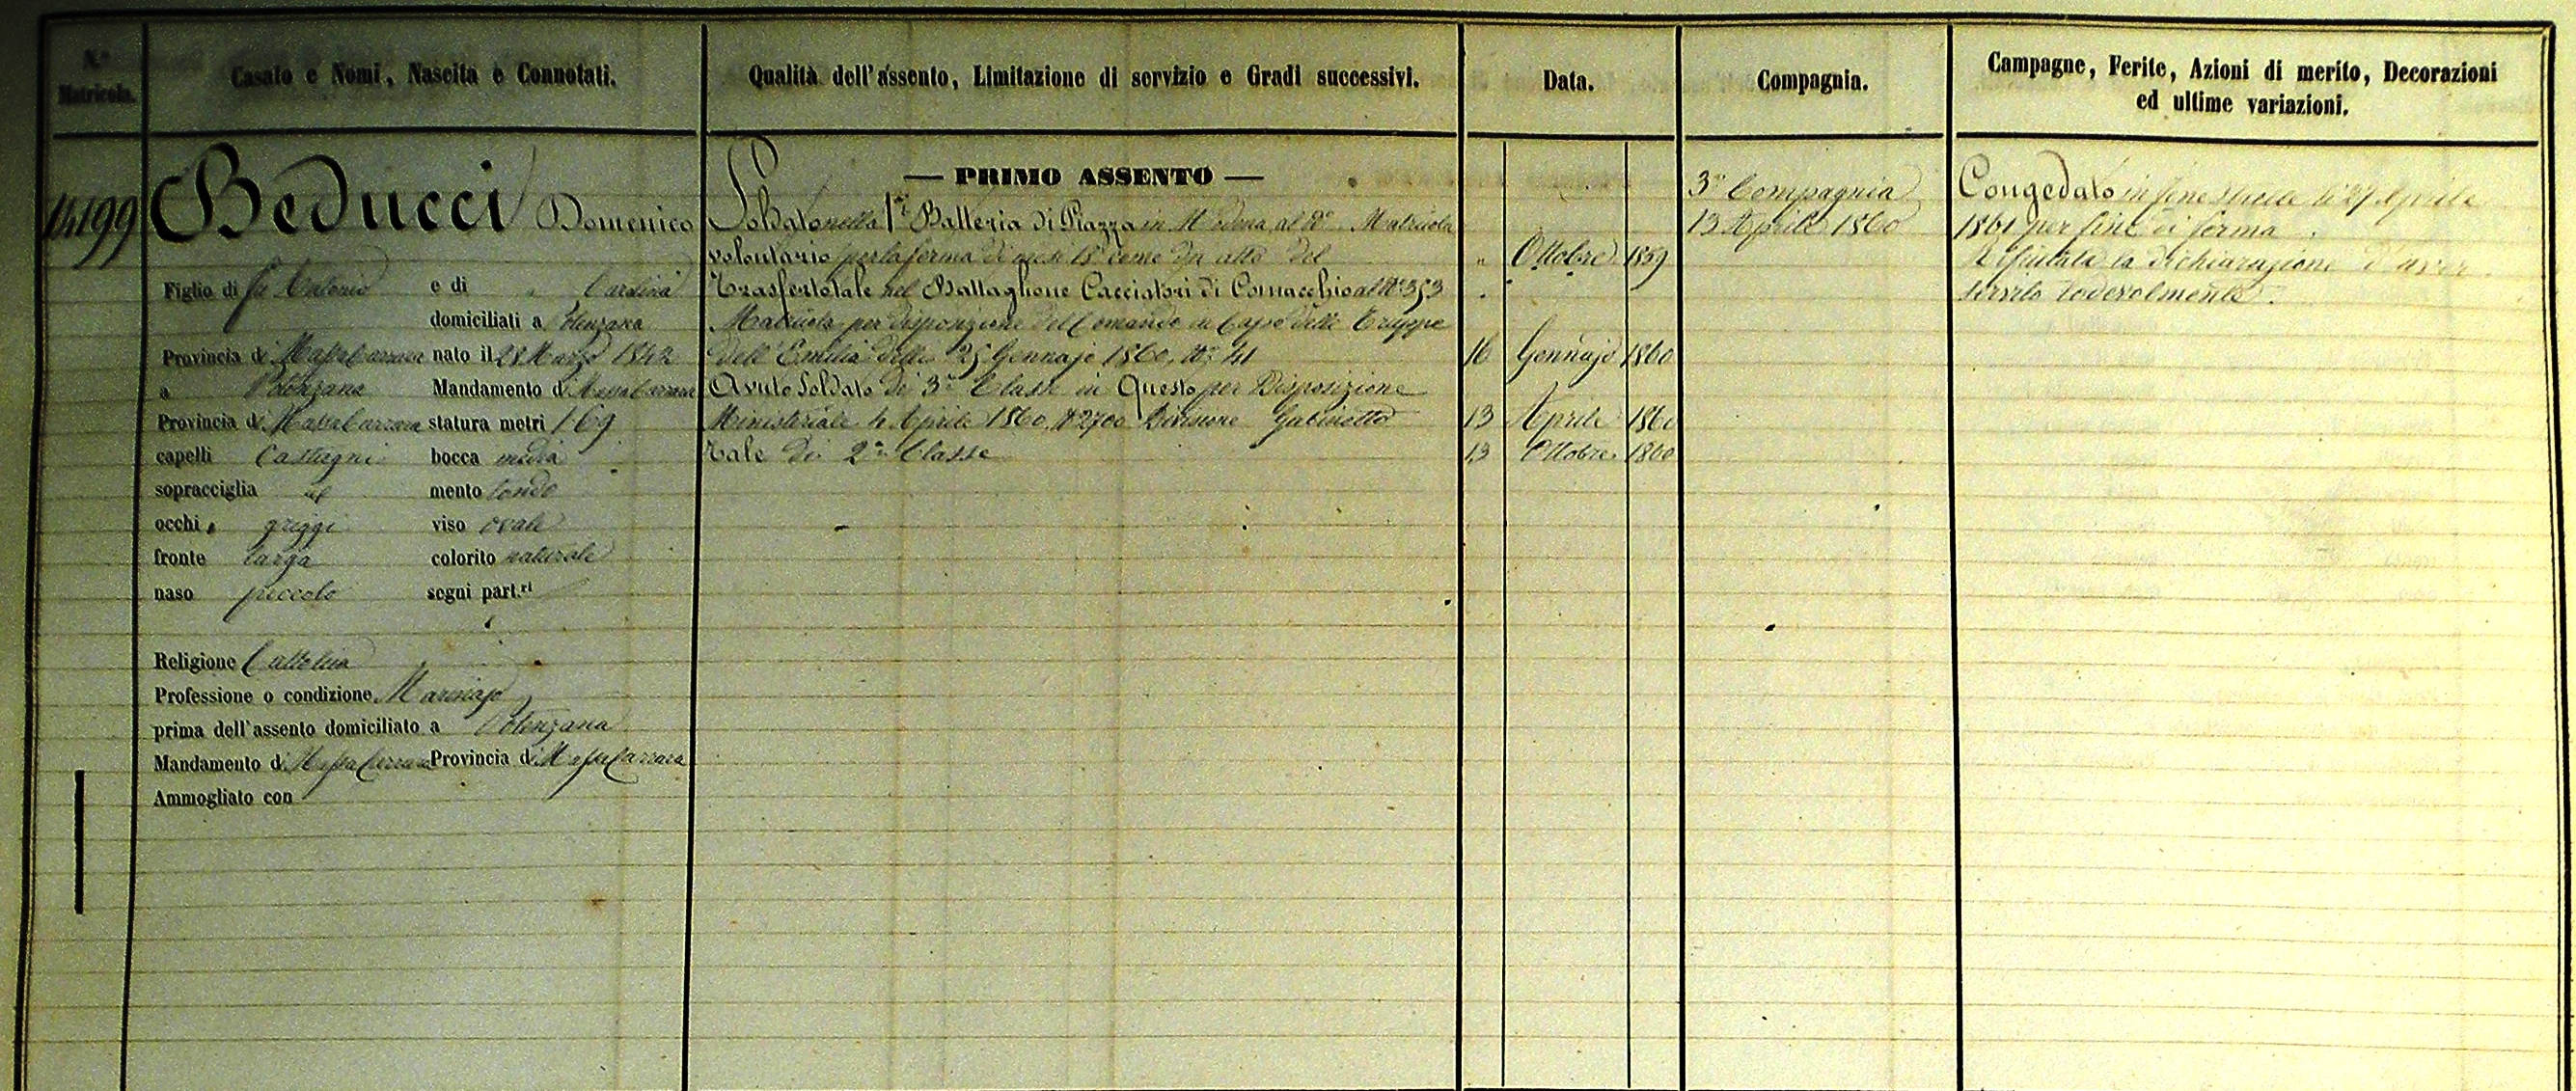 N.° Matricola.
Casato e Nomi, Nascita e Connotati.
Qualità dell'assento, Limitazione di servizio e Gradi successivi.
Data.
Compagnia.
Campagne, Ferite, Azioni di merito, Decorazioni
ed ultime variazioni.
14199
Beducci Domenico
Figlio di fu Antonio e di " Cardina
domiciliati a
Provincia di Massa Carrara nato il 28 Marzo 1842
a Mandamento di Massa Carrara
Provincia di Massa Carrara statura metri 1 69
capelli Castagni bocca media
sopracciglia id mento tondo
occhi griggi viso ovale
fronte larga colorito naturale
naso piccolo segni part.ri
Religione Cattolica
Professione o condizione Marinajo
prima dell'assento domiciliato a
Mandamento di Massa Carrara Provincia di Massa Carrara
Ammogliato con
— PRIMO ASSENTO —
Soldato nella 1a Batteria di Piazza in Modena al N° Matricola
volontario per la ferma di mesi 18 come da atto del " Ottobre 1859
Trasferto tale nel Battaglione Cacciatori di Comacchio al N° 353
Matricola per disposizione del Comando in Capo delle Truppe
dell'Emilia delli 25 Gennajo 1860, N° 41 16 Gennajo 1860
Avuto Soldato di 3a Classe in Questo per Disposizione
Ministeriale 4 Aprile 1860 N° 2700 Divisione Gabinetto 13 Aprile 1860
Tale di 2a Classe 13 Ottobre 1860
3a Compagnia
13 Aprile 1860
Congedato in li 27 Aprile
1861 per fine di ferma.
Rifiutata la dichiarazione d'aver
servito lodevolmente.